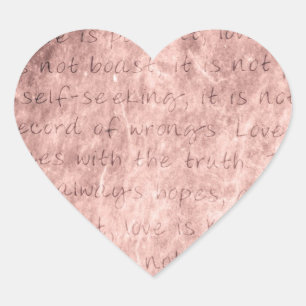 love is p t, love
is not boast it is not
self-seeking, it is not
record of wrongs Love
es with the truth.
always hopes,
t, love is
not